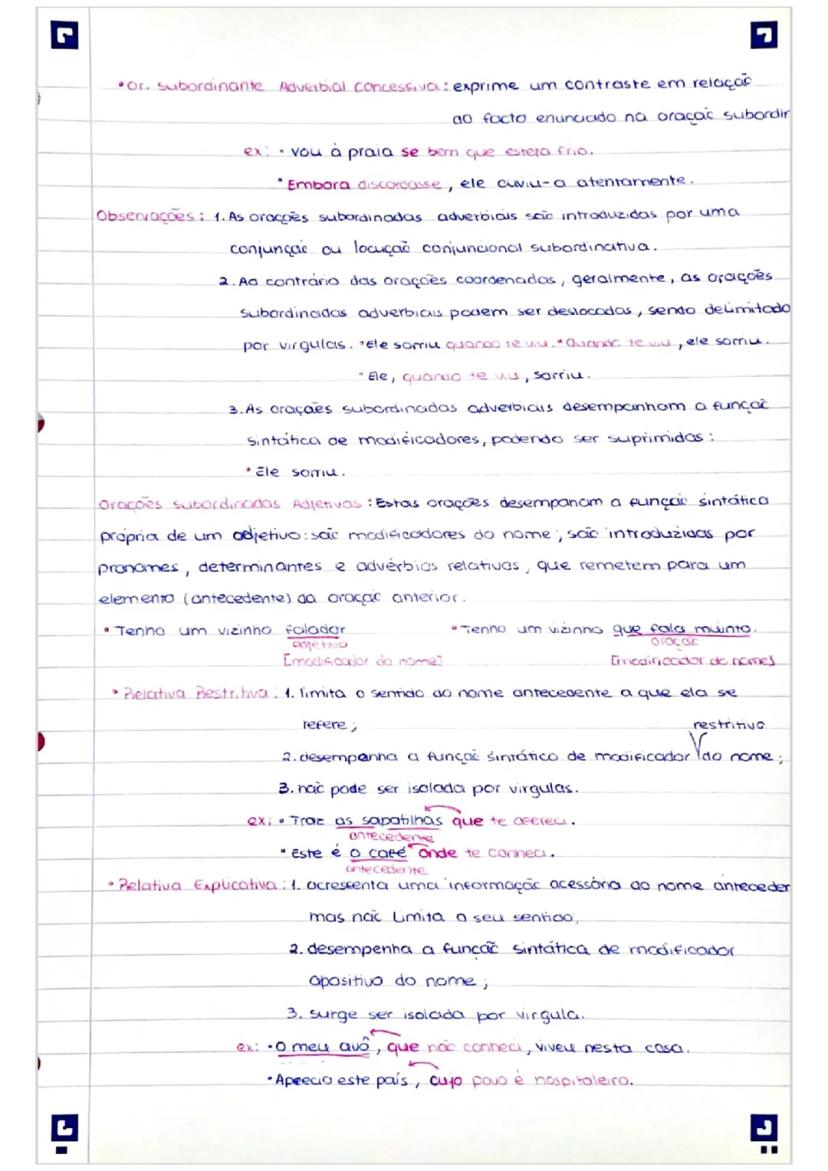 •Or. Subordinante Adverbial Concessiva: exprime um contraste em relação
ao facto enunciado na oração subordin
ex: • Vou à praia se bem que esteja frio.
• Embora discordasse, ele ouviu-a atentamente.
Observações: 1. As orações subordinadas adverbiais são introduzidas por uma
conjunção ou locução conjuncional subordinativa.
2. Ao contrário das orações coordenadas, geralmente, as orações
subordinadas adverbiais podem ser deslocadas, sendo delimitado
por virgulas. •Ele sorriu quando te viu. •Quando te viu, ele sorriu.
• Ele, quando te viu, sorriu.
3. As orações subordinadas adverbiais desempenham a função
sintática de modificadores, podendo ser suprimidas:
• Ele sorriu.
Orações subordinadas Adjetivas: Estas orações desempanam a função sintática
própria de um adjetivo: são modificadores do nome; são introduzidas por
pronomes, determinantes e advérbios relativos, que remetem para um
elemento (antecedente) da oração anterior.
• Tenho um vizinho falador • Tenho um vizinho que fala muinto.
adjetivo oração
[modificador do nome] [modificador do nome]
• Relativa Restritiva: 1. limita o sentido do nome antecedente a que ela se
refere; restritivo
2. desempenha a função sintático de modificador do nome;
3. não pode ser isolada por virgulas.
ex: • Traz as sapatilhas que te ofereci.
antecedente
• Este é o café onde te conheci.
antecedente
• Relativa Explicativa: 1. acrescenta uma informação acessória ao nome anteceder
mas não limita o seu sentido,
2. desempenha a função sintática de modificador
apositivo do nome;
3. surge ser isolada por virgula.
ex: • O meu avô, que não conheci, viveu nesta casa.
• Aprecio este país, cujo povo é hospitaleiro.